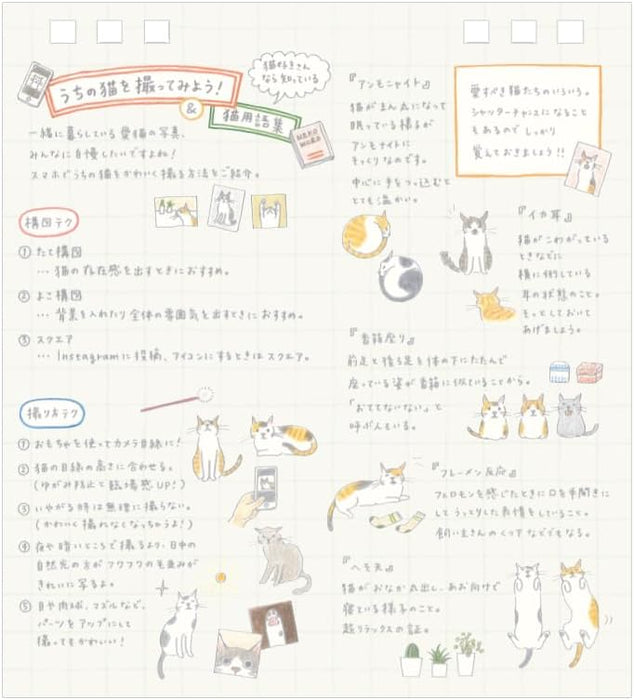 うちの猫を撮ってみよう!
&
猫用語集
猫好きさん
なら知っている
NEKO
WORD
一緒に暮らしている愛猫の写真、
みんなに自慢したいですよね!
スマホでうちの猫をかわいく撮る方法をご紹介。
構図テク
① たて構図
… 猫の存在感を出すときにおすすめ。
② よこ構図
… 背景を入れたり全体の雰囲気を出すときにおすすめ。
③ スクエア
… Instagramに投稿、アイコンにするときはスクエア。
撮り方テク
① おもちゃを使ってカメラ目線に!
② 猫の目線の高さに合わせる。
(ゆがみ防止と臨場感UP!)
③ いやがる時は無理に撮らない。
(かわいく撮れなくなっちゃうよ!)
④ 夜や暗いところで撮るより、日中の
自然光の方がフワフワの毛並みが
きれいに写るよ。
⑤ 目や肉球、マズルなど、
パーツをアップにして
撮ってもかわいい!
『アンモニャイト』
猫がまん丸になって
眠っている様子が
アンモナイトに
そっくりなのです。
中心に手をつっ込むと
とても温かい。
愛すべき猫たちのいろいろ。
シャッターチャンスになること
もあるので しっかり
覚えておきましょう!!
『イカ耳』
猫がこわがっている
ときなどに
横に倒している
耳の状態のこと。
そっとしておいて
あげましょう。
『香箱座り』
前足と後ろ足を体の下にたたんで
座っている姿が香箱に似ていることから。
「おててないない」と
呼ぶ人もいる。
『フレーメン反応』
フェロモンを感じたときに口を半開きに
してうっとりした表情をしていること。
飼い主さんのくつ下などでもなる。
『へそ天』
猫がおなか丸出し、あお向けで
寝ている様子のこと。
超リラックスの証。